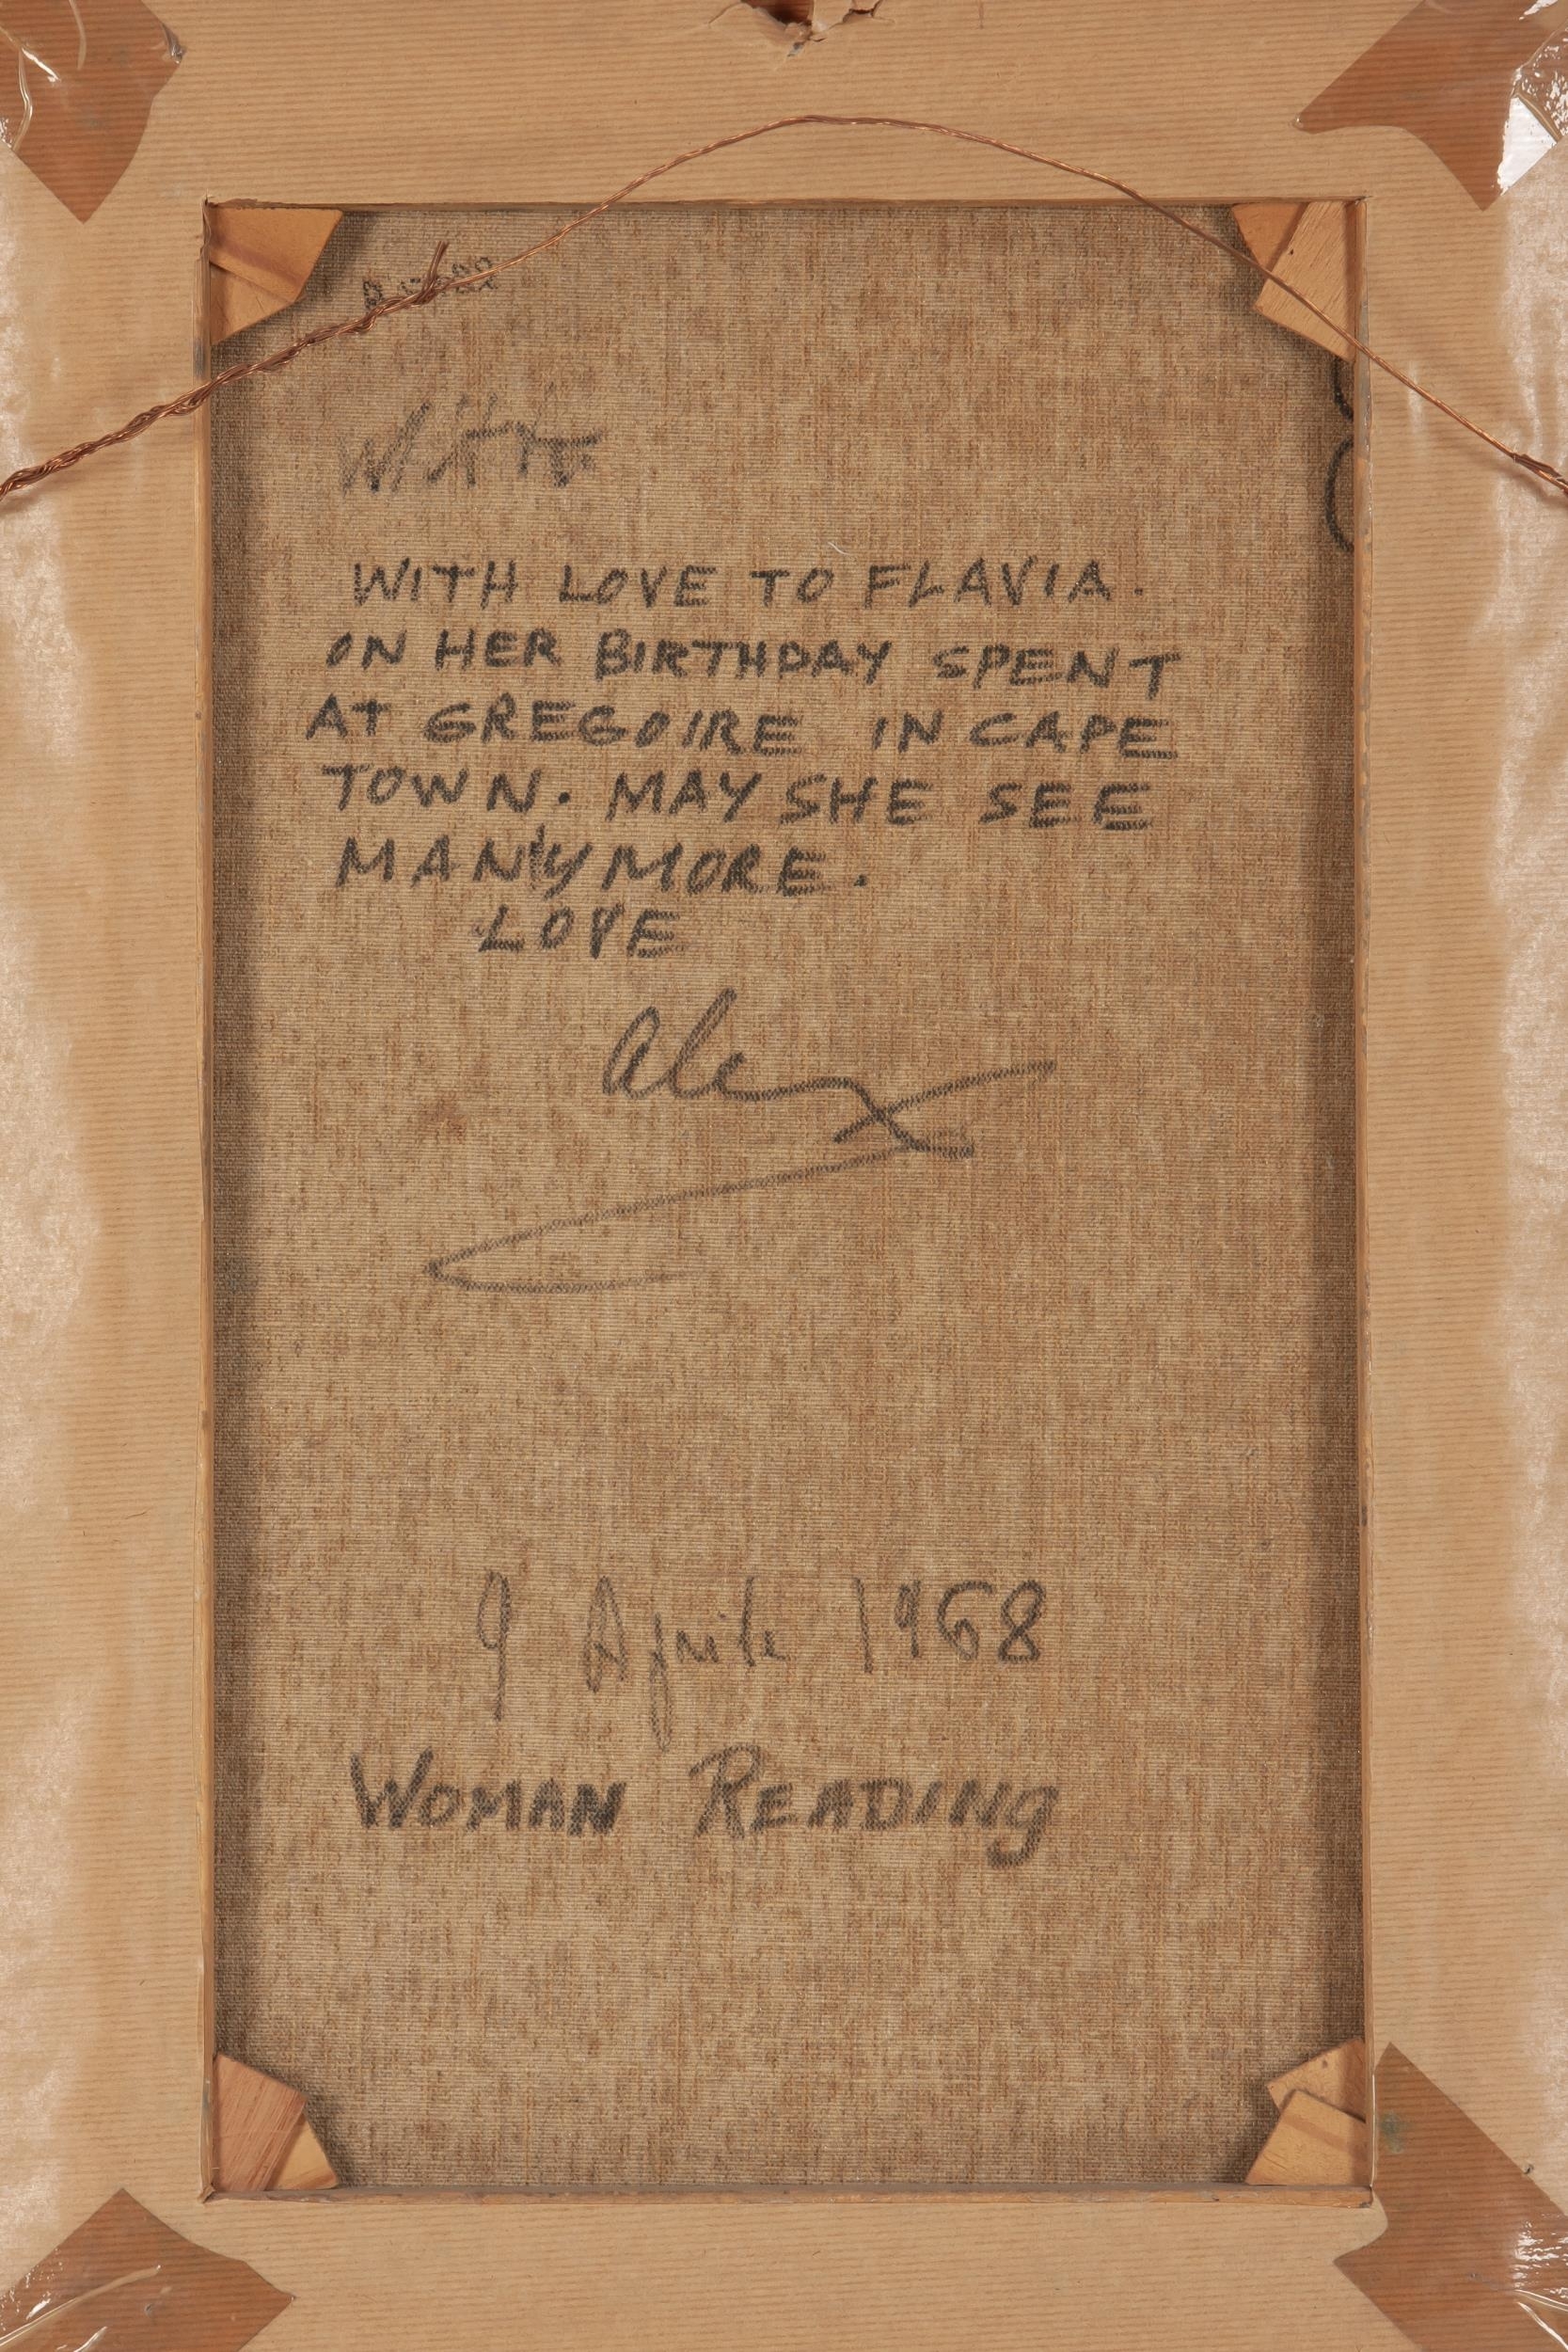 WITH LOVE TO FLAVIA.
ON HER BIRTHDAY SPENT
AT GREGOIRE IN CAPE
TOWN. MAY SHE SEE
MANY MORE.
LOVE
Alex
9 Aprile 1968
WOMAN READING